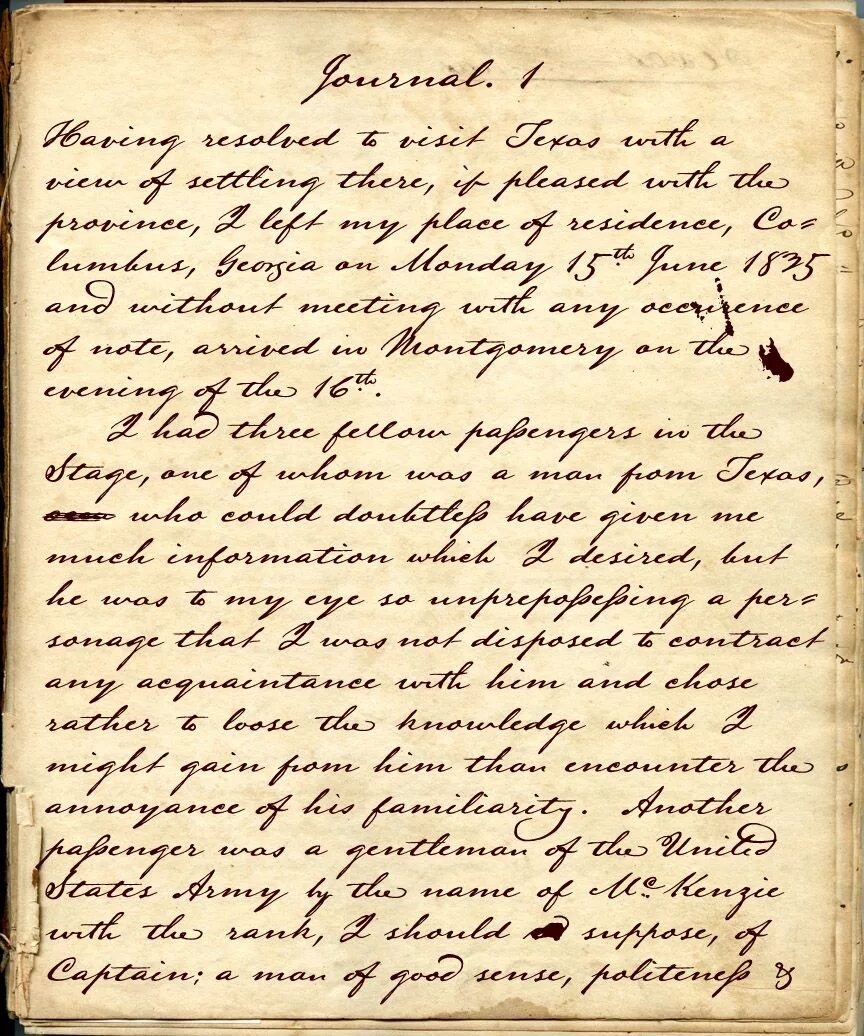 Journal. 1
Having resolved to visit Texas with a
view of settling there, if pleased with the
province, I left my place of residence, Co=
lumbus, Georgia on Monday 15th June 1835
and without meeting with any occurence
of note, arrived in Montgomery on the
evening of the 16th.
I had three fellow paſsengers in the
Stage, one of whom was a man from Texas,
who could doubtleſs have given me
much information which I desired, but
he was to my eye so unprepoſseſsing a per=
sonage that I was not disposed to contract
any acquaintance with him and chose
rather to loose the knowledge which I
might gain from him than encounter the
annoyance of his familiarity. Another
paſsenger was a gentleman of the United
States Army by the name of Mc Kenzie
with the rank, I should suppose, of
Captain; a man of good sense, politeneſs &